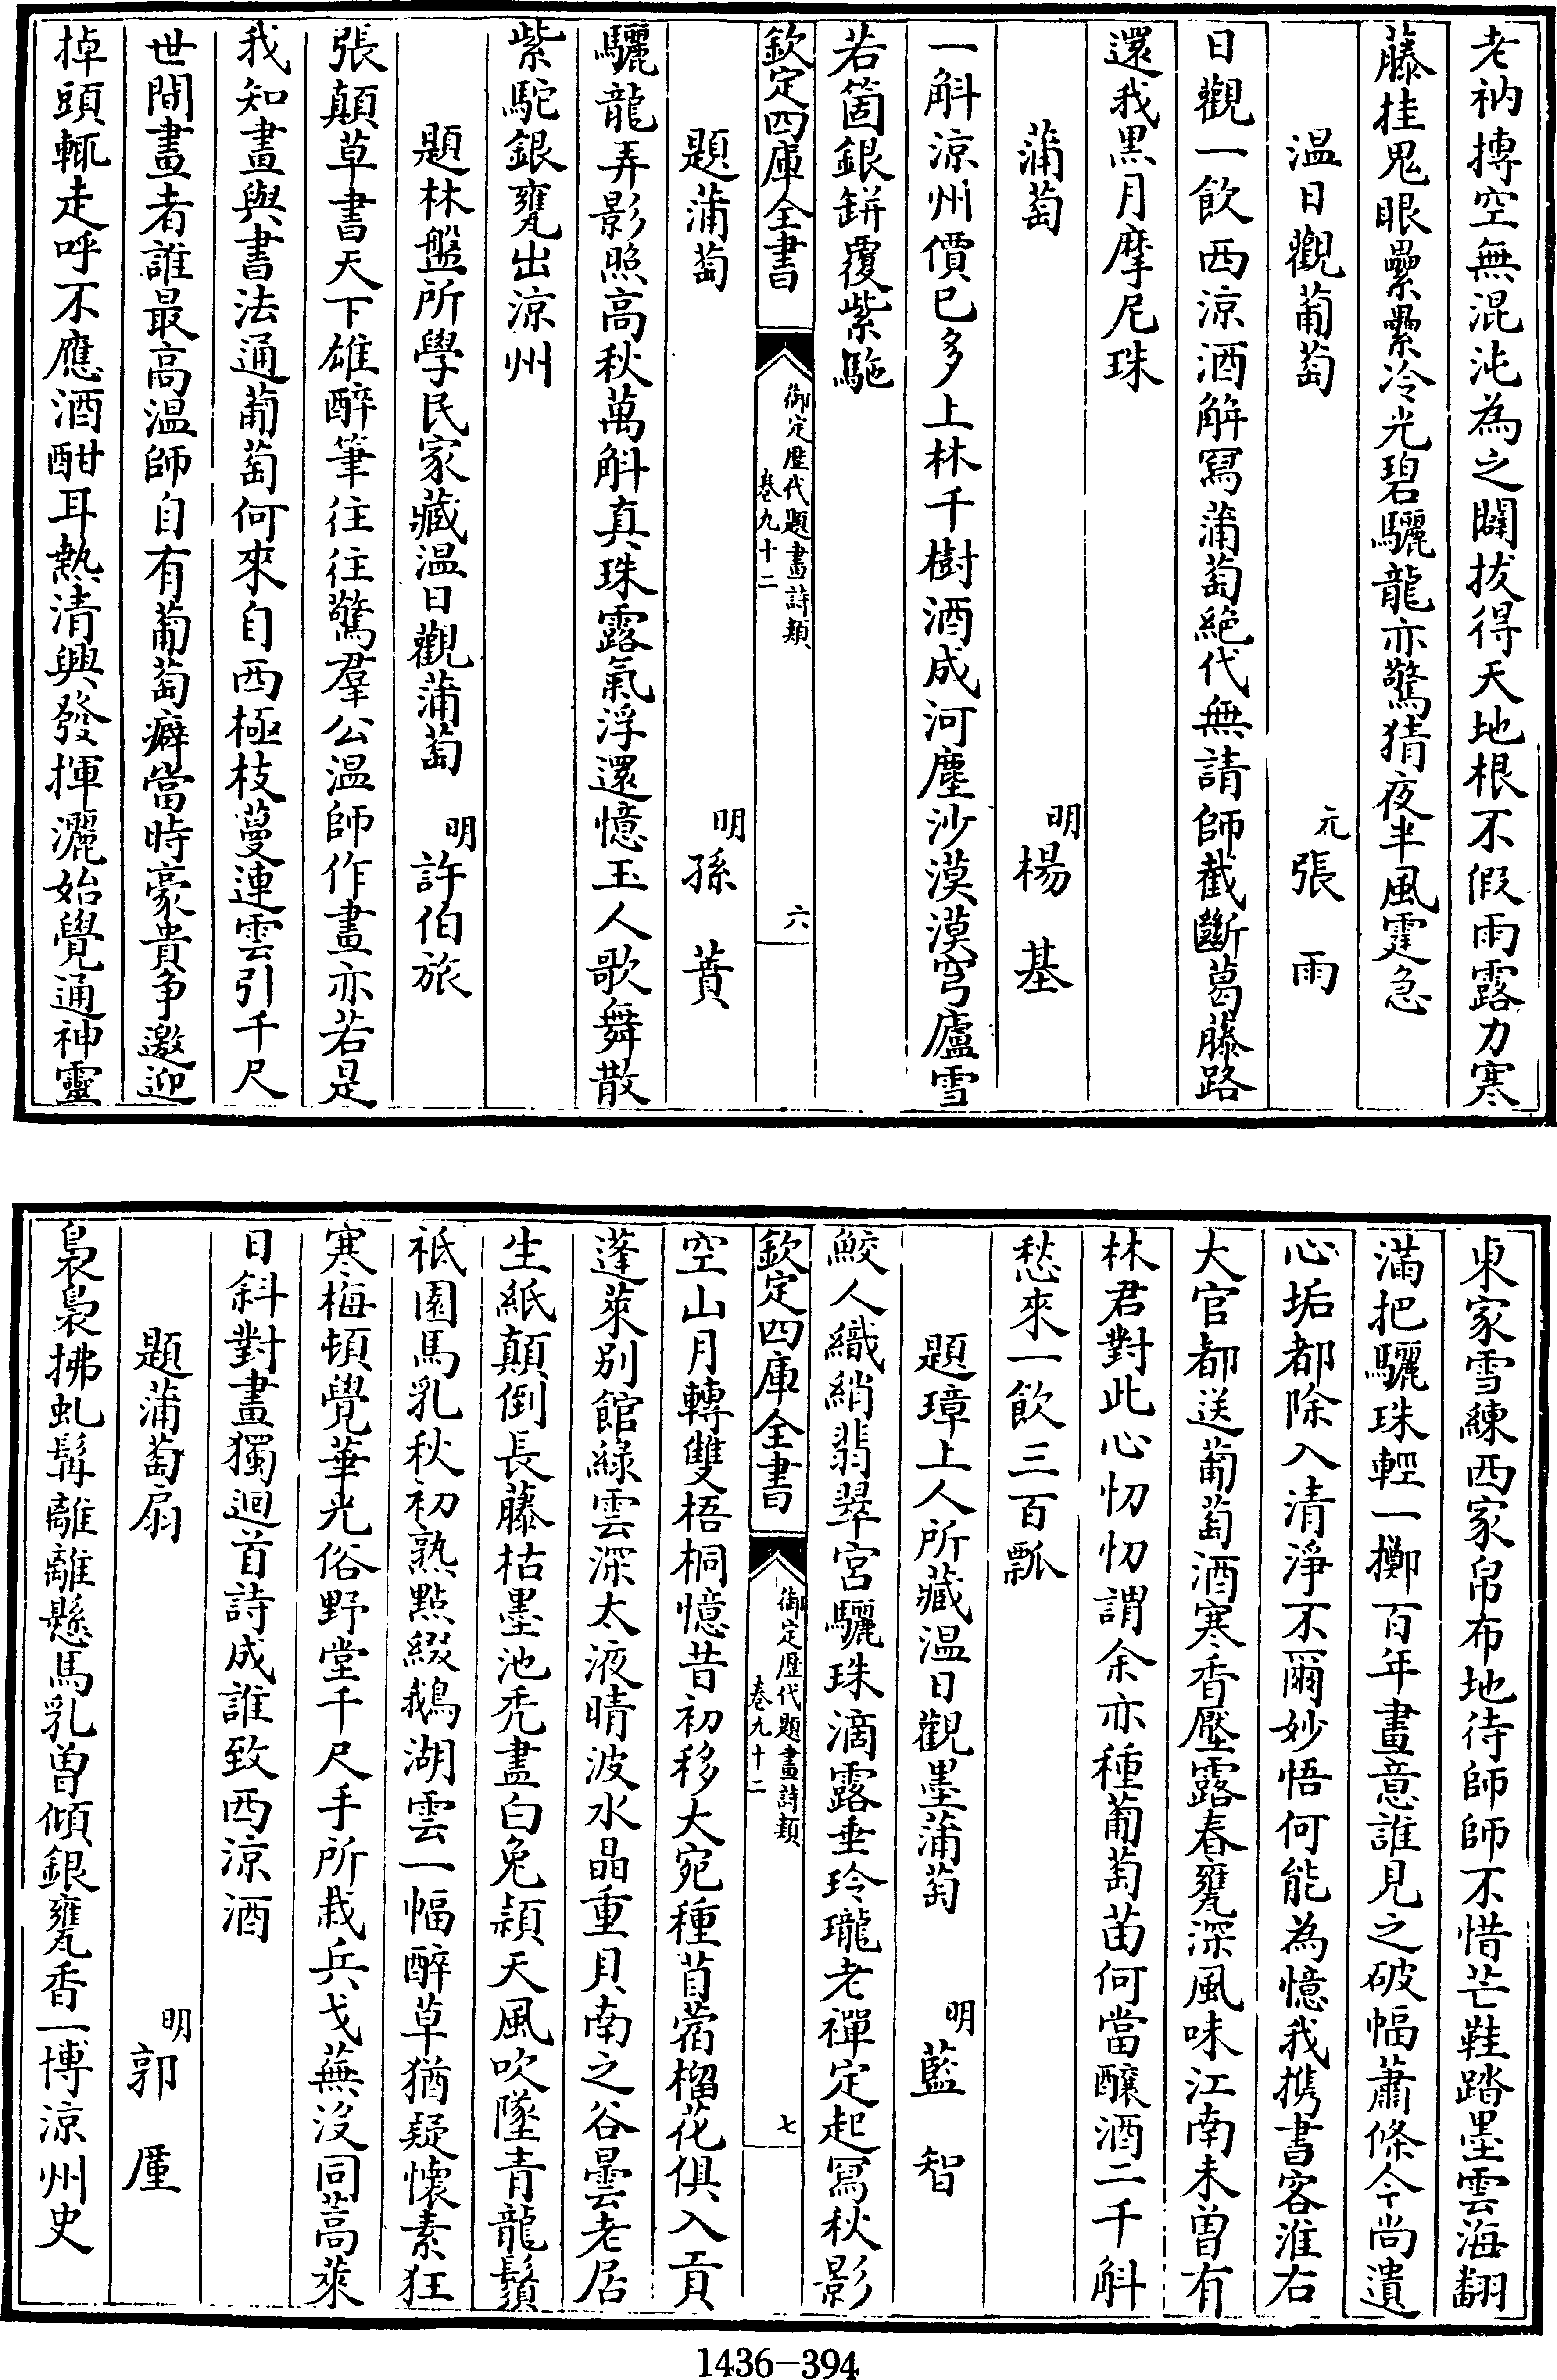 老衲摶空無混沌為之闢拔得天地根不假雨露力寒
藤挂鬼眼纍纍冷光碧驪龍亦驚猜夜半風霆急
温日觀葡萄　元張雨
日觀一飲西涼酒解冩蒲萄絶代無請師截斷葛藤路
還我黒月摩尼珠
蒲萄　明楊基
一斛涼州價已多上林千樹酒成河塵沙漠漠穹廬雪
若箇銀缾覆紫駞
欽定四庫全書
御定歴代題畫詩類
卷九十二
六
題蒲萄　明孫蕡
驪龍弄影照高秋萬斛真珠露氣浮還憶玉人歌舞散
紫駝銀甕出涼州
題林盤所學民家藏温日觀蒲萄　明許伯旅
張顛草書天下雄醉筆往往驚羣公温師作畫亦若是
我知畫與書法通葡萄何來自西極枝蔓連雲引千尺
世間畫者誰最高温師自有葡萄癖當時豪貴争邀迎
掉頭輒走呼不應酒酣耳熱清興發揮灑始覺通神靈
東家雪練西家帛布地待師師不惜芒鞋踏墨雲海翻
滿把驪珠輕一擲百年畫意誰見之破幅蕭條今尚遺
心垢都除入清淨不爾妙悟何能為憶我携書客淮右
大官都送葡萄酒寒香壓露春甕深風味江南未曽有
林君對此心忉忉謂余亦種葡萄苗何當釀酒二千斛
愁來一飲三百瓢
題璋上人所藏温日觀墨蒲萄　明藍智
鮫人織綃翡翠宮驪珠滴露垂玲瓏老禪定起冩秋影
欽定四庫全書
御定歴代題畫詩類
卷九十二
七
空山月轉雙梧桐憶昔初移大宛種苜蓿榴花俱入貢
蓬萊别館綠雲深太液晴波水晶重貝南之谷曇老居
生紙顛倒長藤枯墨池禿盡白兔潁天風吹墜青龍鬚
祗園馬乳秋初熟點綴鵝湖雲一幅醉草猶疑懷素狂
寒梅頓覺華光俗野堂千尺手所栽兵戈蕪沒同蒿萊
日斜對畫獨迴首詩成誰致西涼酒
題蒲萄扇　明郭厪
裊裊拂虬髯離離懸馬乳曽傾銀甕香一博涼州史
1436-394